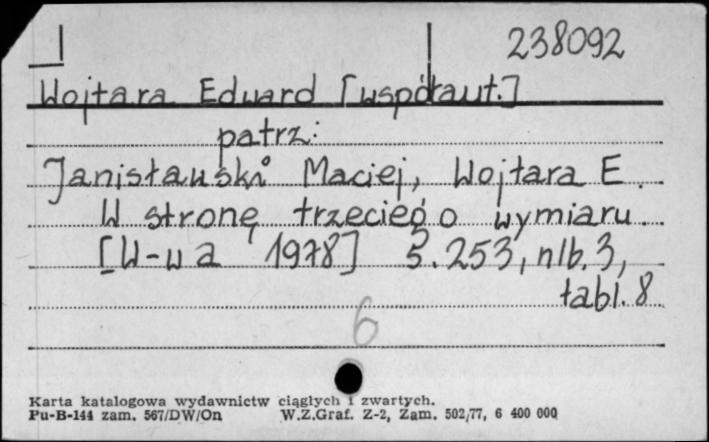 238092
Wojtara Eduard [współaut.]
patrz:
Janisławski Maciej, Wojtara E.
W stronę trzeciego wymiaru
[W-wa 1978] S. 253, nlb. 3,
tabl. 8
6
Karta katalogowa wydawnictw ciągłych i zwartych.
Pu-B-144 zam. 567/DW/On W.Z.Graf. Z-2, Zam. 502/77, 6 400 000